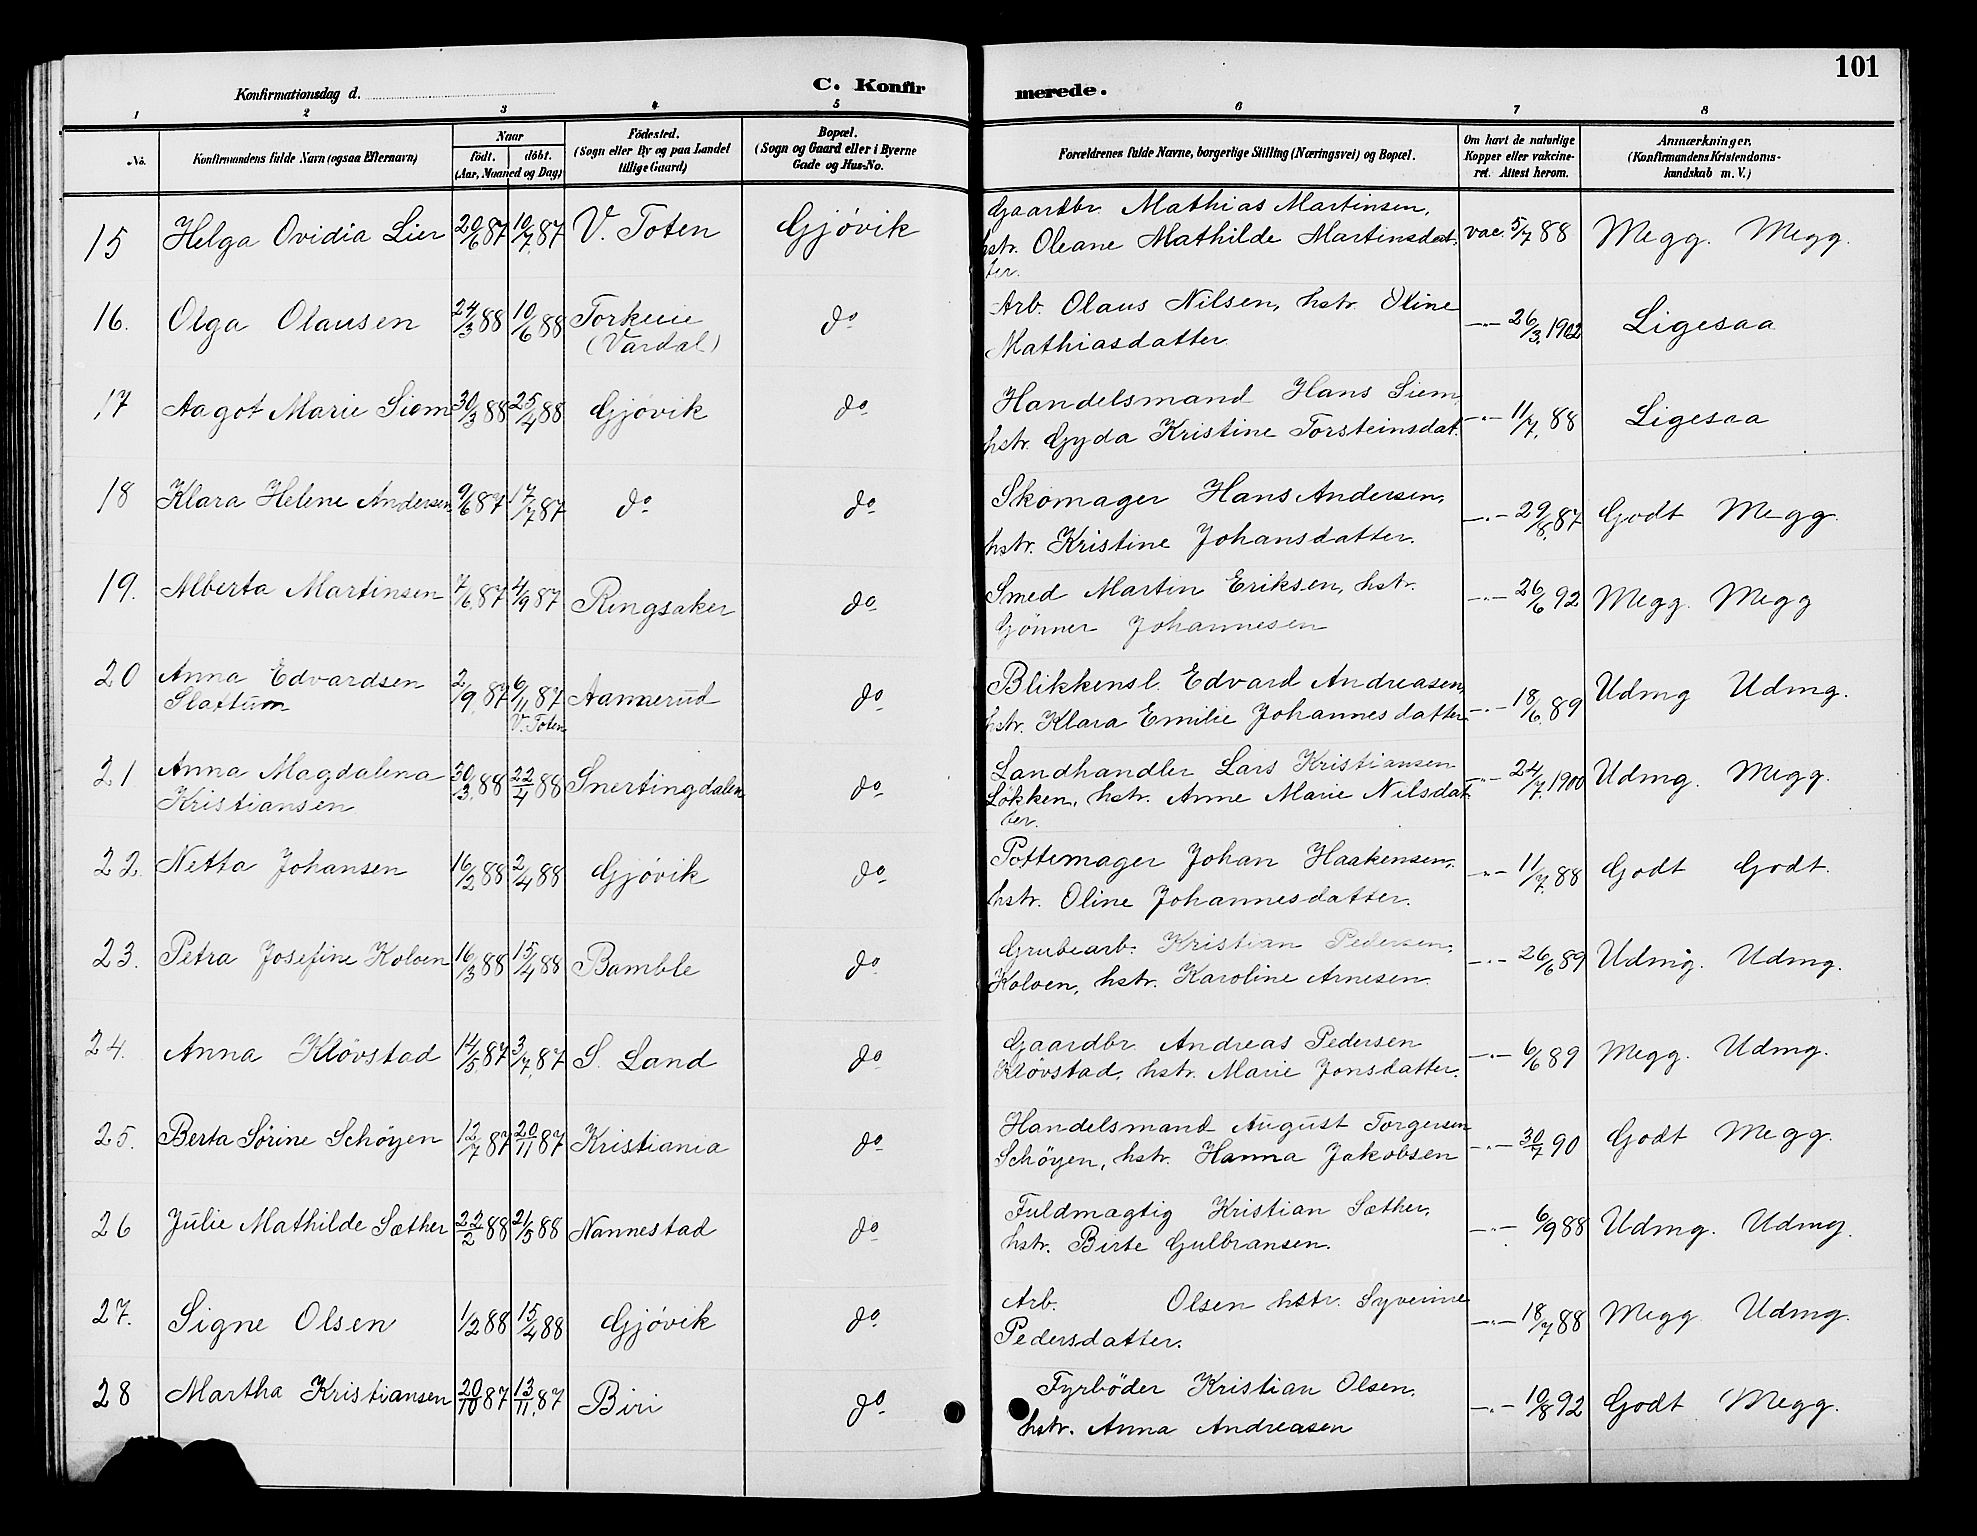 101
Konfirmationsdag d.
C. Konfirmerede.
1 2 3 4 5 6 7 8
No. | Konfirmandens fulde Navn (ogsaa Efternavn) | Naar født. døbt. (Aar, Maaned og Dag) | Fødested. (Sogn eller By og paa Landet tillige Gaard) | Bopæl. (Sogn og Gaard eller i Byerne Gade og Hus-No. | Forældrenes fulde Navne, borgerlige Stilling (Næringsvei) og Bopæl. | Om havt de naturlige Kopper eller vakcineret. Attest herom. | Anmærkninger. (Konfirmandens Kristendomskundskab m. V.)
15 Helga Ovidia Lier 20/6 87 10/7 87 V. Toten Gjøvik Gaardbr. Mathias Martinsen, vac. 5/7 88 Megg. Megg.
hstr. Oleane Mathilde Martinsdat
ter.
16. Olga Olausen 24/3 88 10/6 88 Torkerie do Arb. Olaus Nilsen, hstr. Oline —"— 26/3 1902 Ligesaa
(Vardal) Mathiasdatter.
17 Aagot Marie Siem 30/3 88 25/4 88 Gjøvik do Handelsmand Hans Siem —"— 11/7. 88 Ligesaa
hstr. Gyda Kristine Torsteinsdat.
18 Klara Helene Andersen 9/6 87 17/7 87 do do Skomager Hans Andersen, —"— 29/8. 87 Godt Megg.
hstr. Kristine Johansdatter.
19. Alberta Martinsen 7/6. 87 4/9 87 Ringsaker do Smed Martin Eriksen, hstr. —"— 26/6 92 Megg. Megg
Gønner Johannesen
20 Anna Edvardsen 2/9. 87 6/11 87 Aannerud do Blikkensl. Edvard Andreasen, —"— 18/6. 89 Udmg Udmg.
Slattum V. Toten hstr. Klara Emilie Johannesdatter
21 Anna Magdalena 30/3. 88 22/4 88 Snertingdalen do Landhandler Lars Kristiansen —"— 24/7. 1900 Udmg. Megg.
Kristiansen Løkken, hstr. Anne Marie Nilsdat
ter.
22. Netta Johansen 16/2 88 2/4 88 Gjøvik do Pottemager Johan Haakensen, —"— 11/7. 88 Godt Godt.
hstr. Oline Johannesdatter.
23. Petra Josefine Koloen 16/3 88 15/4 88 Bamble do Grubearb. Kristian Pedersen, —"— 26/6 89 Udmg. Udmg.
Koloen, hstr. Karoline Arnesen.
24. Anna Kløvstad 14/5. 87 3/7. 87 S. Land do Gaardbr. Andreas Pedersen —"— 6/6 89 Megg. Udmg.
Kløvstad, hstr. Marie Jonsdatter.
25. Berta Sørine Schøyen 12/7 87 20/11 87 Kristiania do Handelsmand August Torgersen —"— 30/7 90 Godt Megg.
Schøyen, hstr. Hanna Jakobsen
26 Julie Mathilde Sæther 22/2 88 21/5 88 Nannestad do Fuldmægtig Kristian Sæther, —"— 6/9 88 Udmg. Udmg.
hstr. Birte Gulbransen.
27. Signe Olsen 1/2 88 15/4 88 Gjøvik do Arb. Olsen hstr. Syverine —"— 18/7 88 Megg Udmg.
Pedersdatter.
28 Martha Kristiansen 20/10 87 13/11. 87 Biri do Fyrbøder Kristian Olsen, —"— 10/8 92 Godt Megg.
hstr. Anna Andreasen